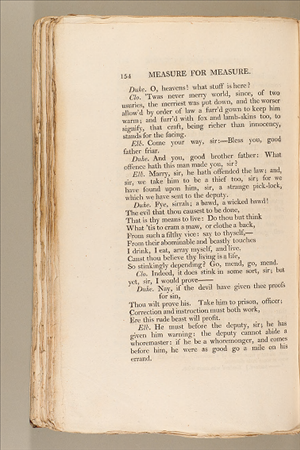 154 MEASURE FOR MEASURE.
Duke. O, heavens! what stuff is here?
Clo. 'Twas never merry world, since, of two
usuries, the merriest was put down, and the worser
allow'd by order of law a furr'd gown to keep him
warm; and furr'd with fox and lamb-skins too, to
signify, that craft, being richer than innocency,
stands for the facing.
Elb. Come your way, sir:—Bless you, good
father friar.
Duke. And you, good brother father: What
offence hath this man made you, sir?
Elb. Marry, sir, he hath offended the law; and,
sir, we take him to be a thief too, sir; for we
have found upon him, sir, a strange pick-lock,
which we have sent to the deputy.
Duke. Fye, sirrah; a bawd, a wicked bawd!
The evil that thou causest to be done,
That is thy means to live: Do thou but think
What 'tis to cram a maw, or clothe a back,
From such a filthy vice: say to thyself,—
From their abominable and beastly touches
I drink, I eat, array myself, and live.
Canst thou believe thy living is a life,
So stinkingly depending? Go, mend, go, mend.
Clo. Indeed, it does stink in some sort, sir; but
yet, sir, I would prove——
Duke. Nay, if the devil have given thee proofs
for sin,
Thou wilt prove his. Take him to prison, officer;
Correction and instruction must both work,
Ere this rude beast will profit.
Elb. He must before the deputy, sir; he has
given him warning: the deputy cannot abide a
whoremaster: if he be a whoremonger, and comes
before him, he were as good go a mile on his
errand.